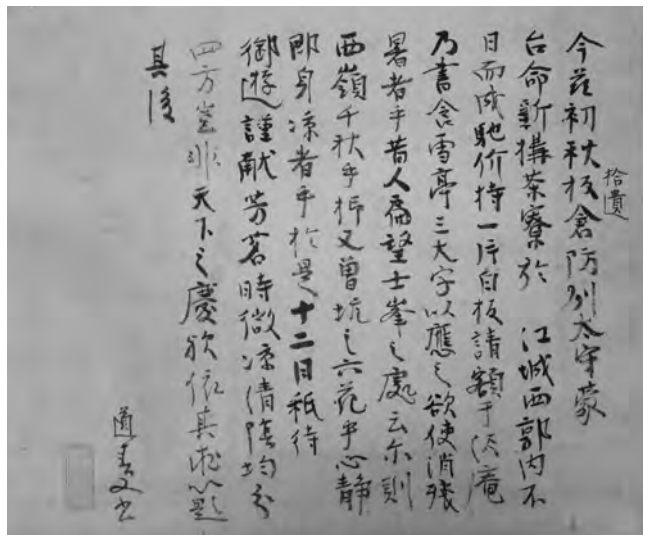 今茲初秋板倉防州太守蒙
拾遺
台命新構茶寮於 江城西郭内不
日而成馳价持一片白板請額于庵
乃書含雪亭三大字以應之欲使消残
暑者乎昔人扁望士峯之處云尓則
西嶺千秋乎抑又曽坑之六花乎心静
即身凉者乎於是十二日祗待
御遊謹献芳茗時微凉清陰均分
四方豈非天下之慶歟依其求以題
其後
道春